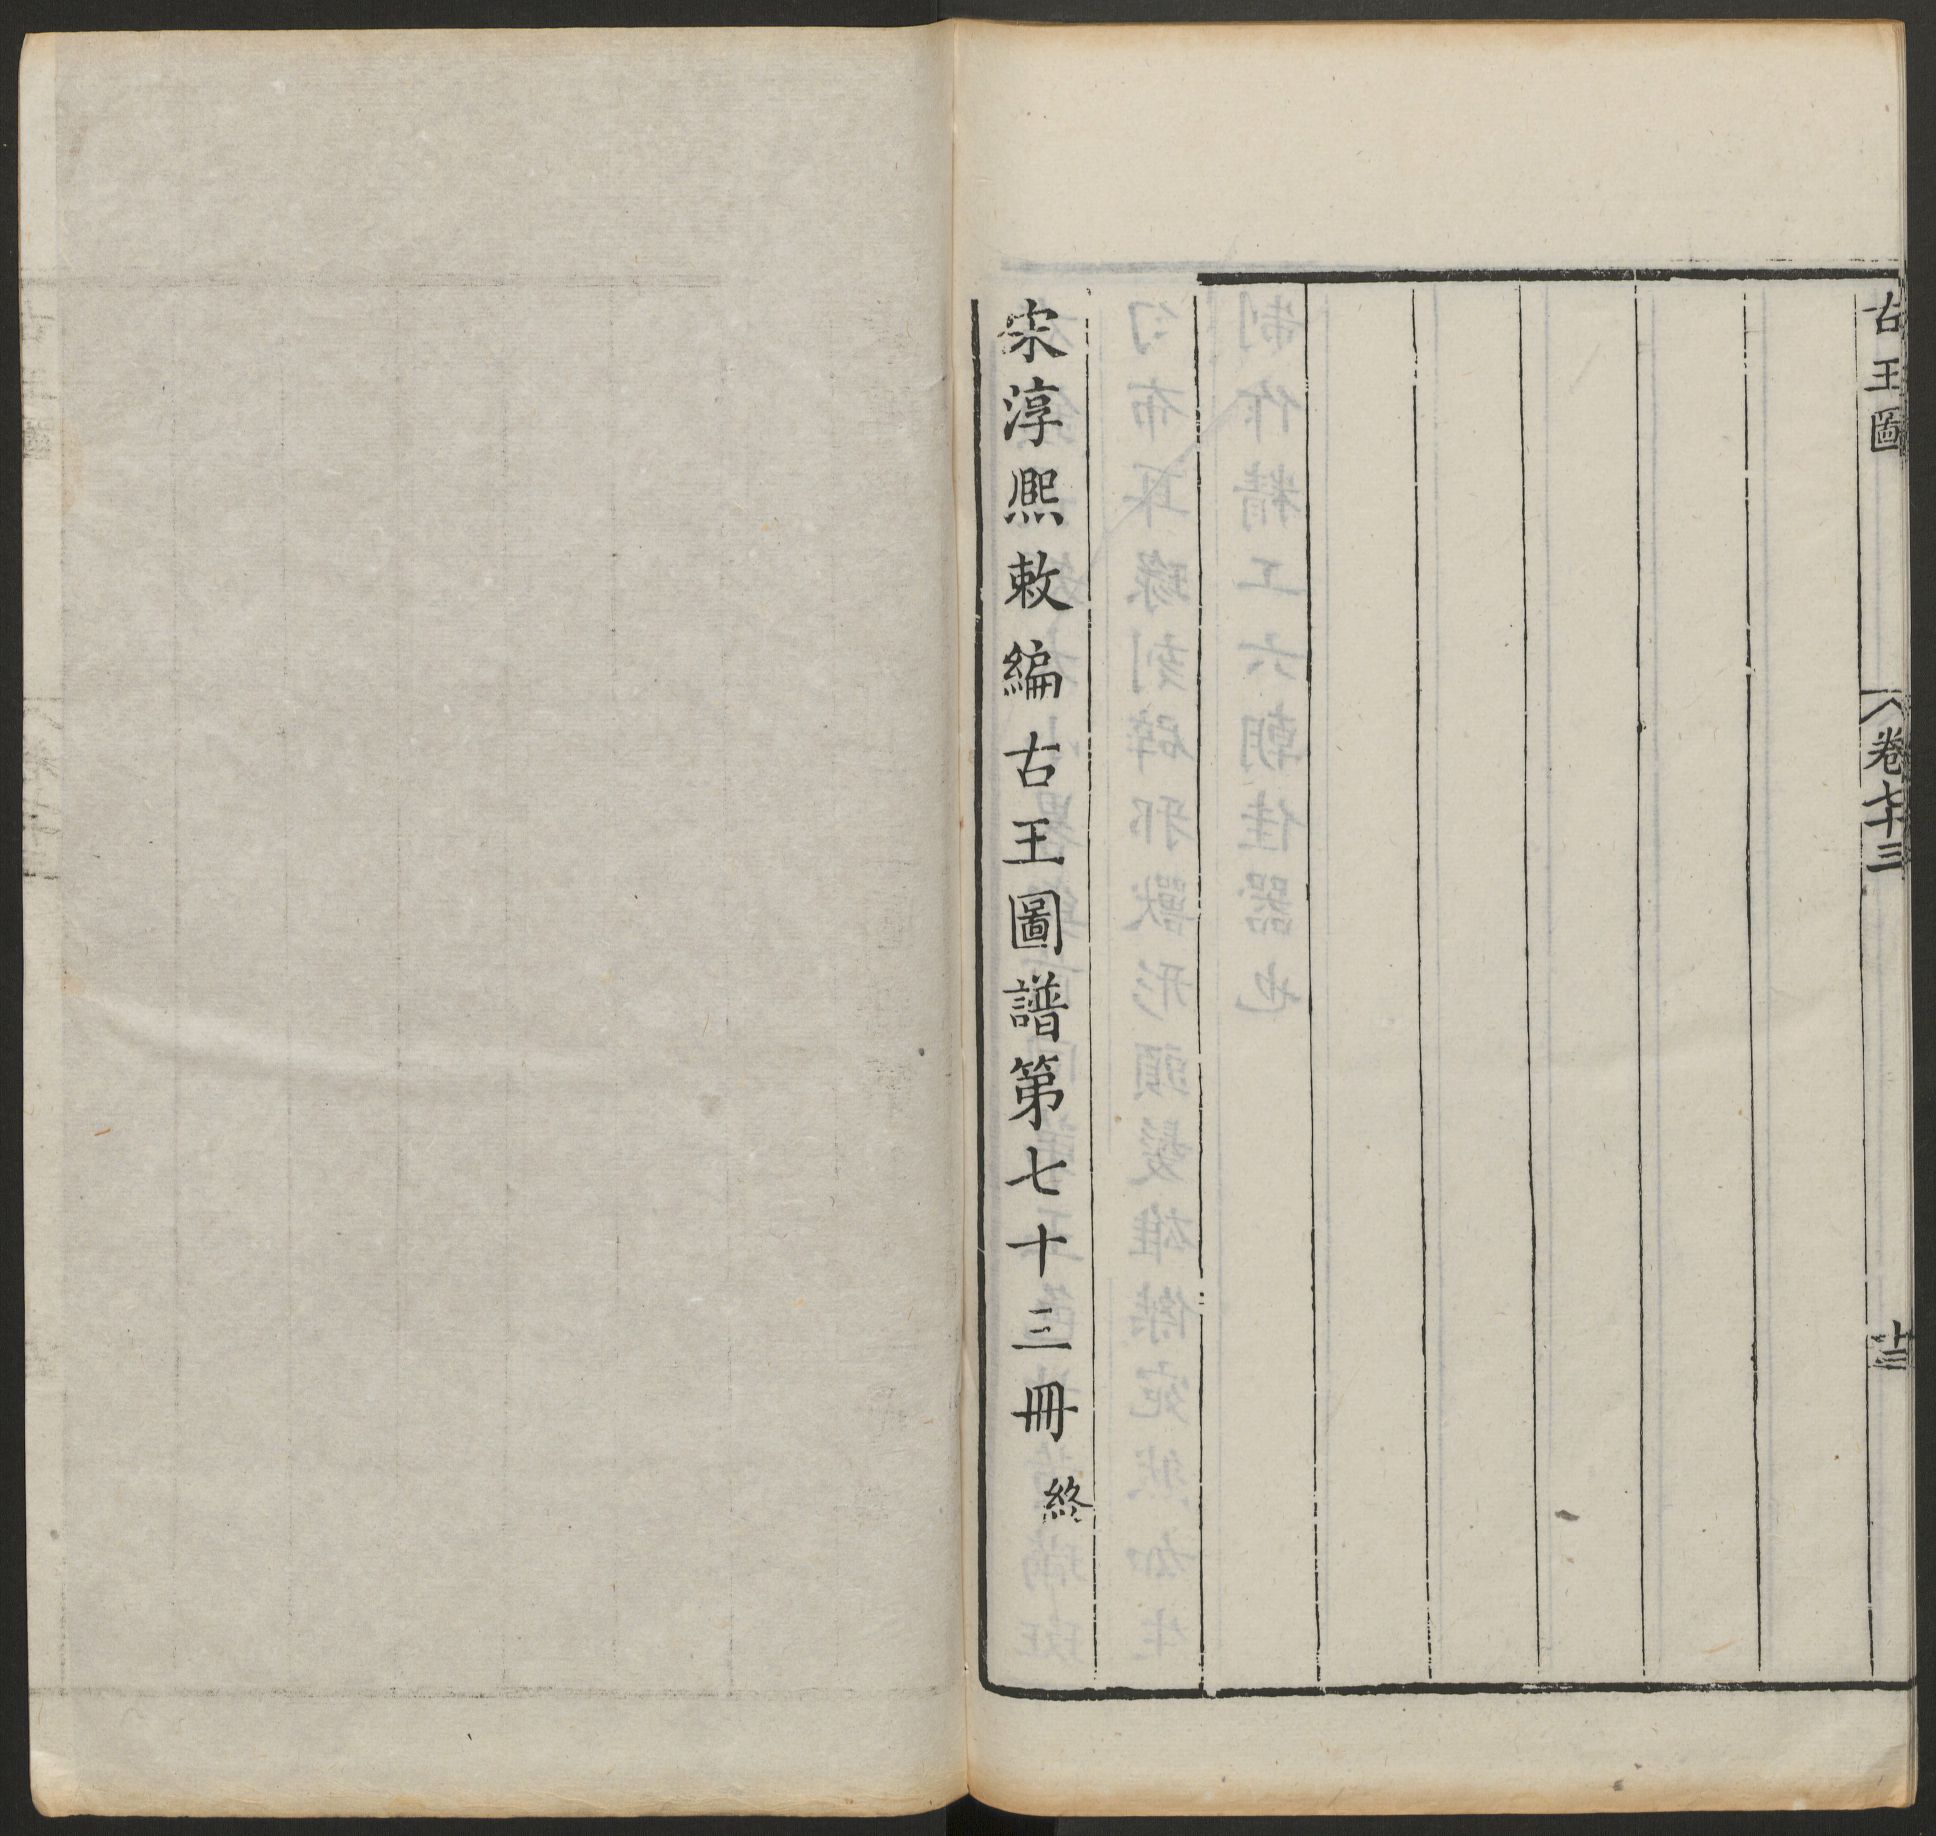 古王圖
卷七十三
十三
宋淳熙敕編古王圖譜第七十三冊 終